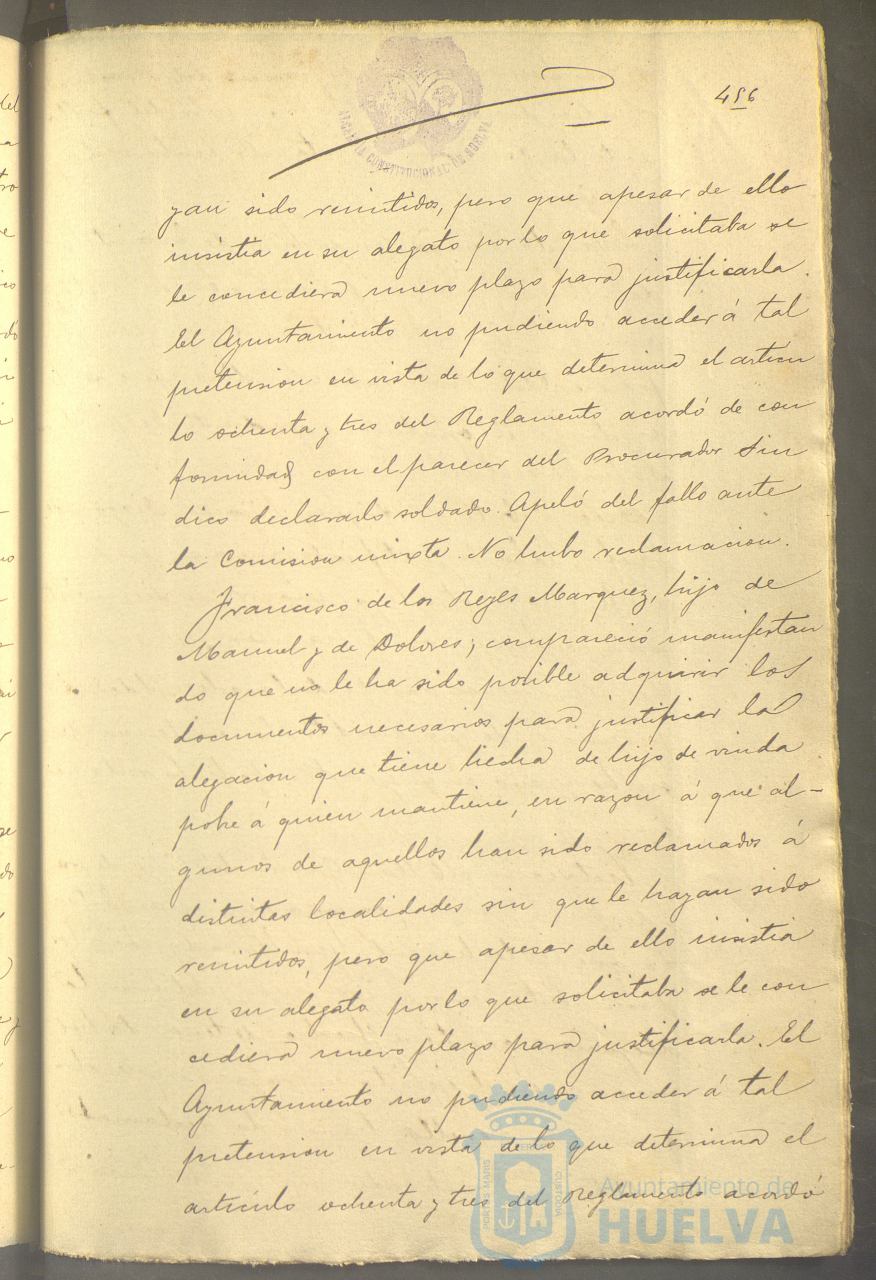 456
ALCALDIA CONSTITUCIONAL DE HUELVA
yan sido remitidos, pero que apesar de ello
insistia en su alegato por lo que solicitaba se
le concediera nuevo plazo para justificarla.
El Ayuntamiento no pudiendo acceder á tal
pretension en vista de lo que determina el articu
lo ochenta y tres del Reglamento acordó de con
formidad con el parecer del Procurador Sin
dico declararlo soldado. Apeló del fallo ante
la Comision mixta. No hubo reclamacion.
Francisco de los Reyes Marquez, hijo de
Manuel y de Dolores; compareció manifestan
do que no le ha sido posible adquirir los
documentos necesarios para justificar la
alegacion que tiene hecha de hijo de viuda
pobre á quien mantiene, en razon á que al-
gunos de aquellos han sido reclamados á
distintas localidades sin que le hayan sido
remitidos, pero que apesar de ello insistia
en su alegato por lo que solicitaba se le con
cediera nuevo plazo para justificarla. El
Ayuntamiento no pudiendo acceder á tal
pretension en vista de lo que determina el
artículo ochenta y tres del Reglamento acordó
PORTUS MARIS
CUSTODIA
Ayuntamiento de
HUELVA